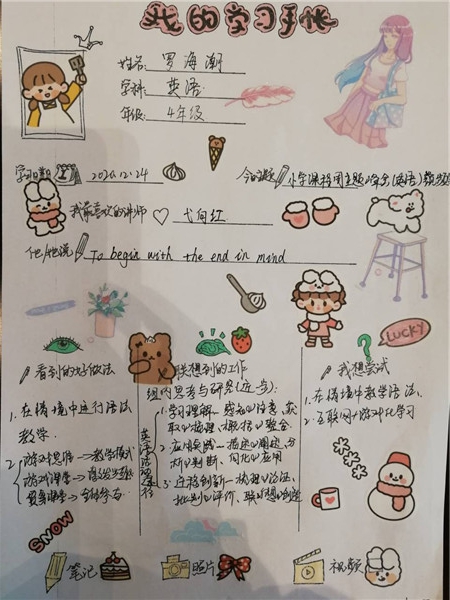 我的学习手帐
姓名: 罗海潮
学科: 英语
年级: 4年级
学习日期 2020.12.24
今日课题 小学课程周主题峰会(英语)教学
我最喜欢的讲师 弋向红
他/她说 To begin with the end in mind
LUCKY
看到的好做法
联想到的工作
我想尝试
组内思考与研究(进一步):
1. 在情境中运行语法
教学.
2. 游戏
英语活动途径
1. 学习理解—感知与注意、获
取与梳理、概括与整合
2. 应用实践—描述与阐述、分
析与判断、内化与应用
3. 迁移创新—推理与论证、
批判与评价、联想与创造
1. 在情境中教学语法,
2. 互联网+游戏化学习
SNOW
笔记
照片
视频